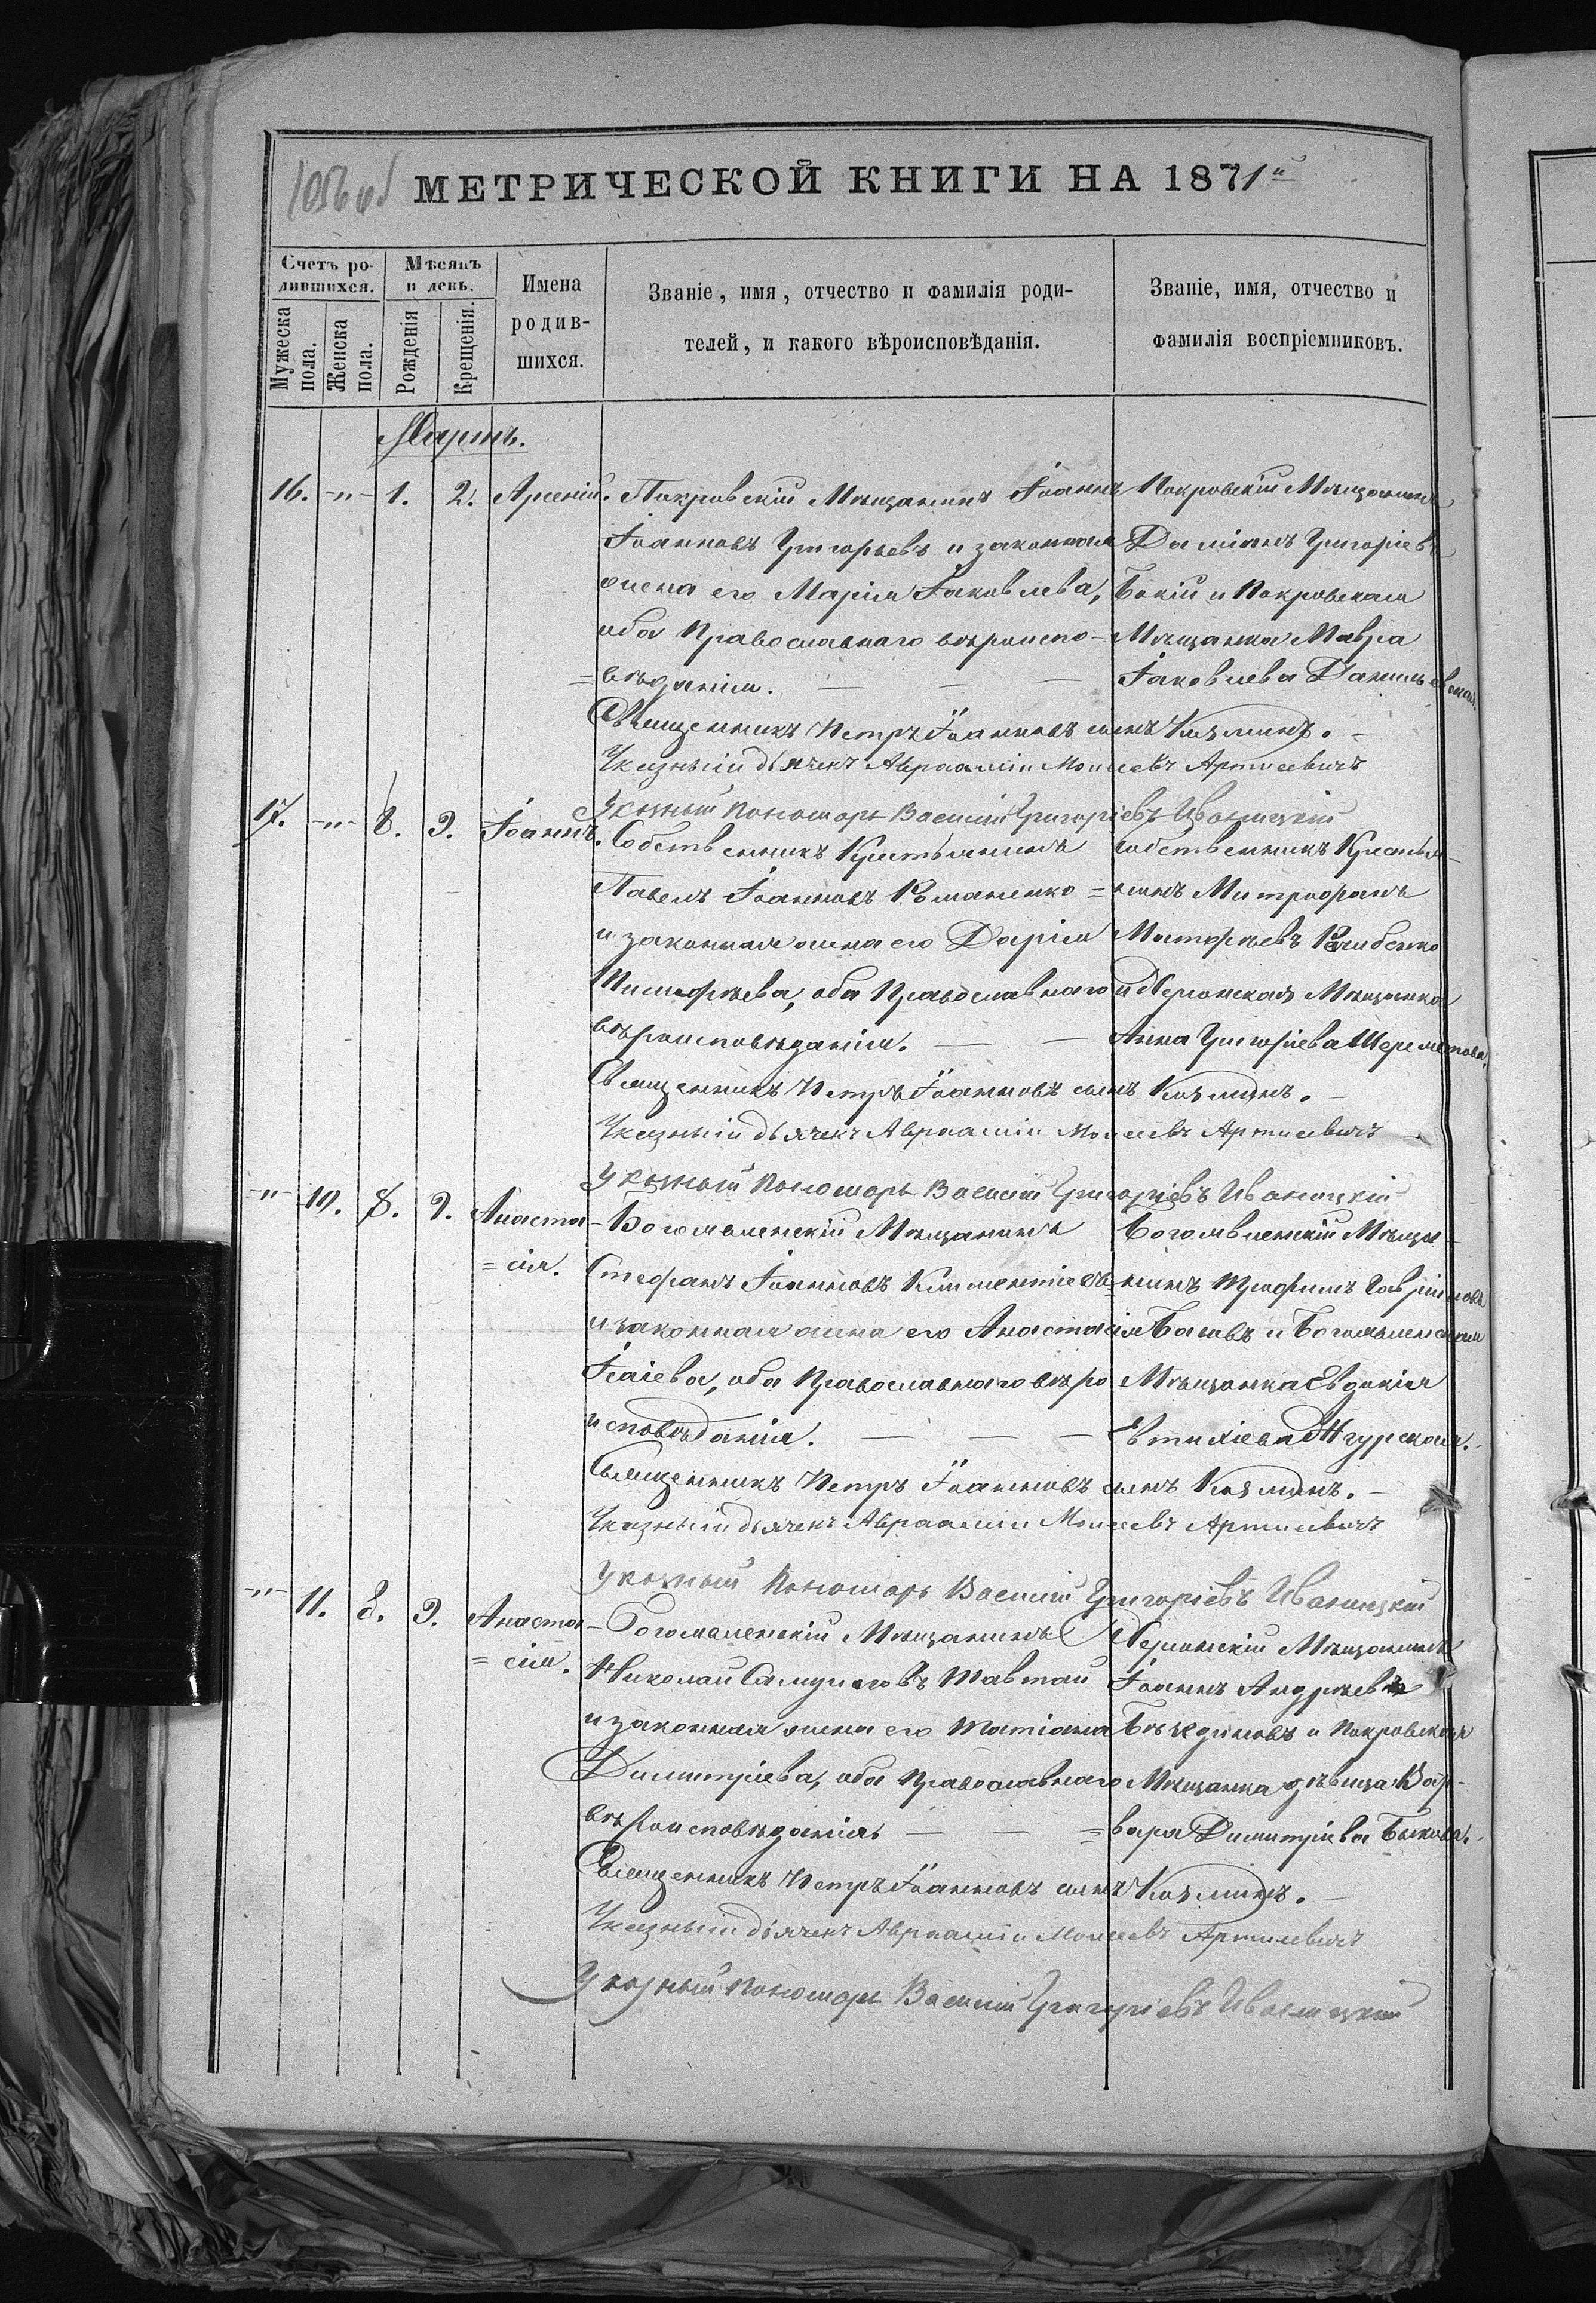 МЕТРИЧЕСКОЙ КНИГИ НА 1871й
Счетъ ро-
дившихся.
Мужеска пола.
Женска пола.
Мѣсяцъ
и день.
Рожденія
Крещенія.
Имена
родив-
шихся.
Званіе, имя, отчество и фамилія роди-
телей, и какого вѣроисповѣданія.
Званіе, имя, отчество и
фамилія воспріемниковъ.
Мартъ.
16. -"- 1. 2. Арсеній.
Покровскій Мѣщанинъ Іоаннъ
Іоанновъ Григорьевъ и законная
жена его Марія Іаковлева,
оба Православнаго вѣроиспо-
=вѣданія. — — —
Покровскій Мѣщанинъ
Даміанъ Григоріевъ
Бокій и Покровская
Мѣщанка Мавра
Іаковлева
Священникъ Петръ Іоанновъ сынъ Козминъ.
Указный дьячекъ Авраамій Моисеевъ Артисевичъ
Указный Пономарь Василій Григоріевъ Иваницкій
17. -"- 8. 9. Іоаннъ.
Собственникъ Крестьянинъ
Павелъ Іоанновъ Романенко
и законная жена его Дарія
Тимофѣева, оба Православнаго
вѣроисповѣданія. — —
Собственникъ Крестья-
=нинъ Митрофанъ
Матфѣевъ
и Херсонская Мѣщанка
Анна Григоріева Шереметова.
Священникъ Петръ Іоанновъ сынъ Козминъ.
Указный дьячекъ Авраамій Моисеевъ Артисевичъ
Указный Пономарь Василій Григоріевъ Иваницкій
-"- 10. 8. 9. Анаста-
=сія.
Богоявленскій Мѣщанинъ
Стефанъ Іоанновъ Климентіевъ
и законная жена его Анастасія
Ісаіева, оба Православнаго вѣро
исповѣданія. — — —
Богоявленскій Мѣща-
=нинъ Трофимъ Гавріиловъ
и Богоявленская
Мѣщанка Евдокія
Евтихіева
Священникъ Петръ Іоанновъ сынъ Козминъ.
Указный дьячекъ Авраамій Моисеевъ Артисевичъ
Указный Пономарь Василій Григоріевъ Иваницкій
-"- 11. 8. 9. Анаста-
=сія.
Богоявленскій Мѣщанинъ
Николай Самуиловъ Шавтай
и законная жена его Татіана
Димитріева, оба Православнаго
вѣроисповѣданія — —
Херсонскій Мѣщанинъ
Іоаннъ Андреевъ
и Покровская
Мѣщанка дѣвица Вар-
=вара Димитріева Быкова.
Священникъ Петръ Іоанновъ сынъ Козминъ.
Указный дьячекъ Авраамій Моисеевъ Артисевичъ
Указный Пономарь Василій Григоріевъ Иваницкій